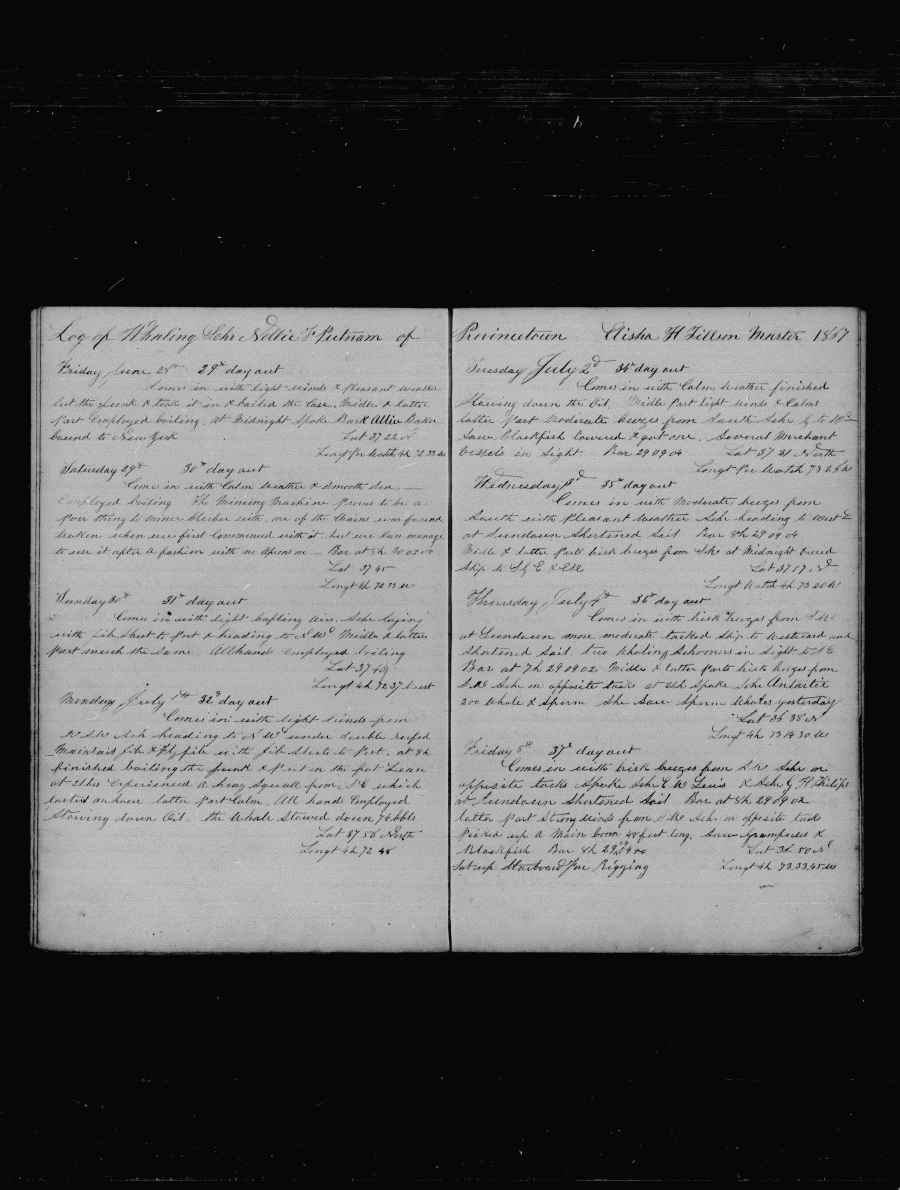 Log of Whaling Schr Nellie F Putnam of
Friday June 28th 29th day out
Comes in with light winds & pleasant weather
cut the junk & took it in & bailed the Case. Middle & latter
part employed boiling. at Midnight spoke Bark Allie Baker
bound to New York Lat 37 22 N
Longt per Watch 4h 72 33 W
Saturday 29th 30th day out
Comes in with Calm weather & smooth sea
employed boiling The Mincing Machine proves to be a
poor thing to mince blubber with one of the Chains was found
broken when we first commenced with it but we can manage
to use it after a fashion with no apron on Bar at 8h 30 02 00
Lat 37 45
Longt 4h 72 23 W
Sunday 30th 31st day out
Comes in with light baffling airs, Schr laying
with jib sheet to Port & heading to N Wd Middle & latter
part much the same. All hands employed boiling
Lat 37 40
Longt 4h 72 37 West
Monday July 1st 32d day out
Comes in with light winds from
W SW Schr heading to N Wd under double reefed
Mainsail jib & Flg jib with jib sheets to Port. at 8h
finished boiling the junk & put on the fat Lean
at 2hs experienced a heavy Squall from which
lasted an hour latter part Calm. All hands Employed
Stowing down Oil. the Whale Stowed down 74 bbls
Lat 37 56 North
Longt 4h 72 48
Provincetown Aisha H Tillson Master 1867
Tuesday July 2d day out
Comes in with Calm weather finished
Stowing down the Oil. Middle part light winds & Calms
latter part Moderate breezes from South Schr to Wd
Saw Blackfish lowered & got one. Several Merchant
Vessels in sight. Bar 29 09 04 Lat 37 31 North
Longt per Watch 73 W
Wednesday 3d 35th day out
Comes in with Moderate breezes from
South with Pleasant Weather Schr heading to West
at Sundown Shortened Sail Bar 8h 29 09 04
Middle & latter parts brisk breezes from SW at Midnight wared
Ship to S & E Lat 37 07 N
Longt Watch 4h 73 20 W
Thursday July 4th 36th day out
Comes in with brisk breezes from S W
at Sundown more moderate tacked Ship to Westward and
shortened Sail two Whaling Schooners in Sight to
Bar at 7h 29 09 02 Middle & latter parts brisk breezes from
S W Schr on opposite tacks at Spoke Schr Antartic
200 Whale & Sperm She Saw Sperm Whales yesterday
Lat 36 38 N
Longt 4h 73 14 30 W
Friday 5th 37th day out
Comes in with brisk breezes from S W Schr on
opposite tacks Spoke Schr E W Lewis & Schr G H Philips
at Sundown Shortened Sail Bar at 8h 29 09 02
latter part Strong winds from S W Schr on oposite tacks
Picked up a Main boom 48 feet long, Saw Grampuses &
Blackfish Bar 8h 29 09 00 Lat 36 50 N
Set up Starboard Fore Rigging Longt 4h 73 33 45 W